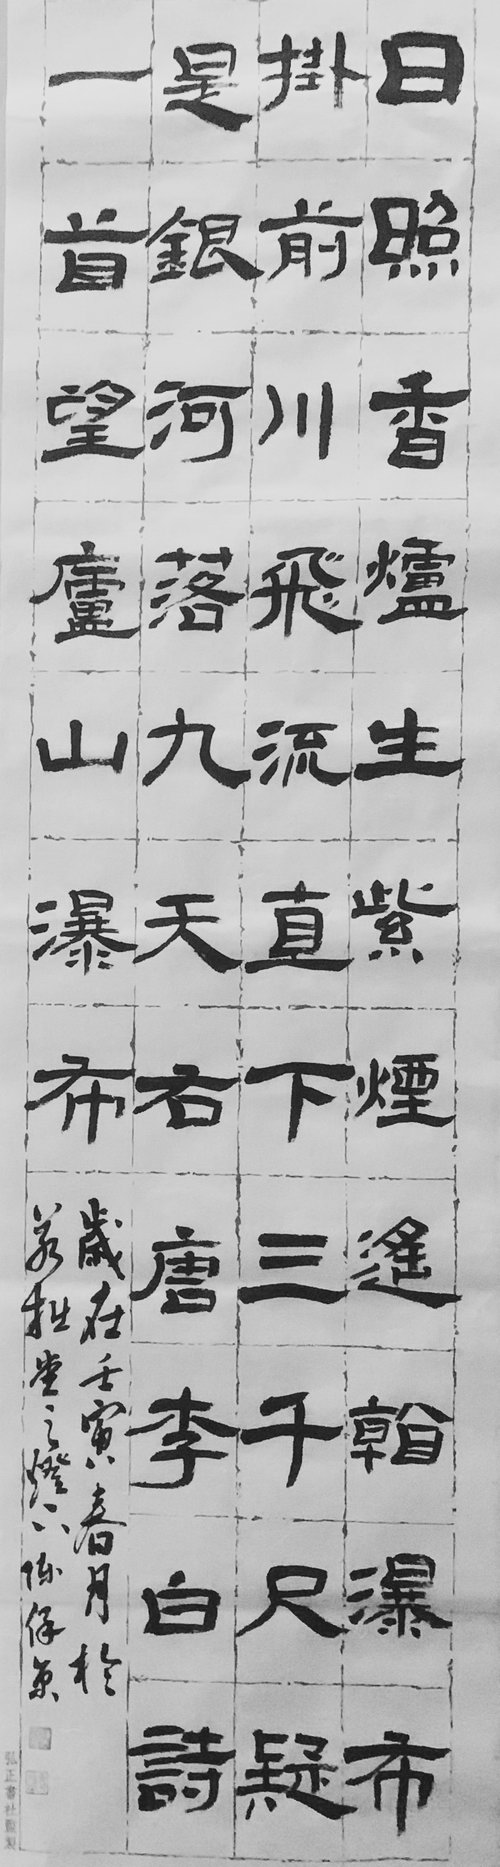 日照香爐生紫煙遙看瀑布
掛前川飛流直下三千尺疑
是銀河落九天右唐李白詩
一首望廬山瀑布
歲在壬寅春月於
拙堂之燈下陳保